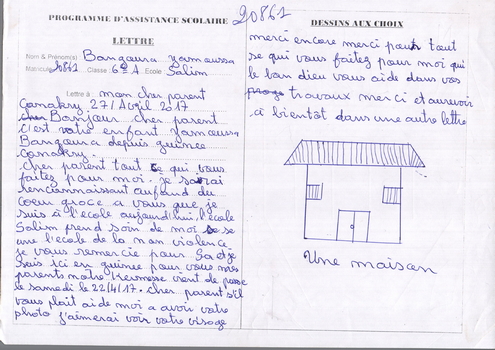 PROGRAMME D'ASSISTANCE SCOLAIRE
20861
LETTRE
Nom & Prénom(s) Bangoura yamoussa
Matricule 20861 Classe : 6e A Ecole Salim
Lettre à : mon cher parent
Conakry, 27/Avril 2017
cher Bonjour cher parent
C'est votre enfant yamoussa
Bangoura depuis guinée
Conakry.
cher parent tout ce qui vous
faitez pour moi. je sarai
renconnaissant aufond du
coeur groce a vous que je
suis à l'école aujourd'hui. l'école
Salim prend soin de moi se
une l'école de la non violence.
je vous remercie pour sa et je
suis ici en guinee pour vous mes
parents notre Kermesse vient de passe
le samedi le 22/4/17. cher parent s'il
vous plait aide moi a avoir votre
photo j'aimerai voir votre visage
DESSINS AUX CHOIX
merci encore merci pour tout
se qui vous faitez pour moi qui
le bon dieu vous aide dans vos
travaux merci et aurevoir
à bientôt dans une autre lettre
Une maison